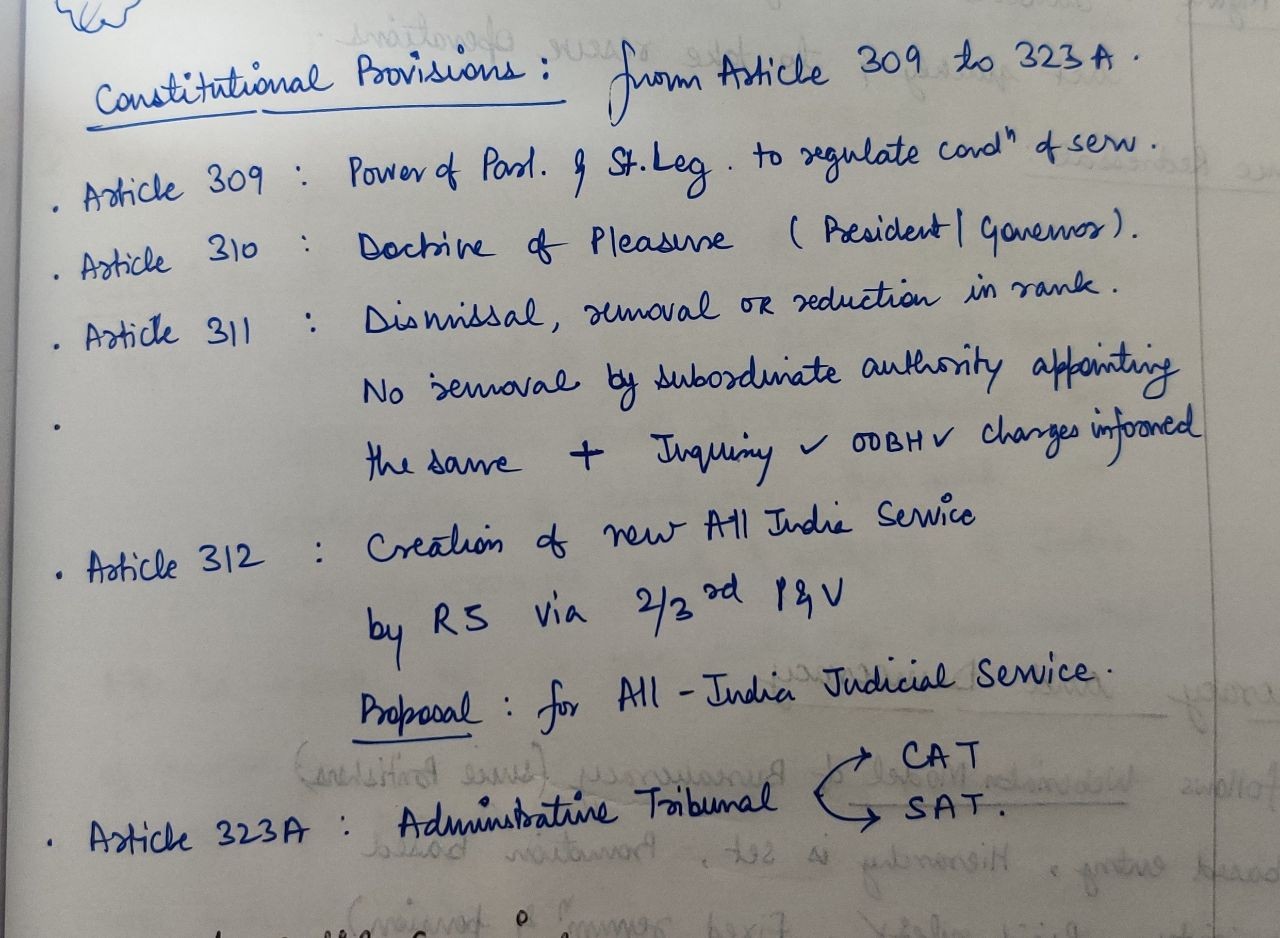 Constitutional Provisions : from Article 309 to 323A .
. Article 309 : Power of Parl. & St. Leg. to regulate condⁿ of serv.
. Article 310 : Doctrine of Pleasure ( President | Governor ).
. Article 311 : Dismissal, removal OR reduction in rank.
No removal by subordinate authority appointing
.
the same + Inquiry ✓ OOBH ✓ charges informed
. Article 312 : Creation of new All India Service
by RS via 2/3 rd P & V
Proposal : for All - India Judicial Service.
. Article 323A : Adminstrative Tribunal → CAT
→ SAT.